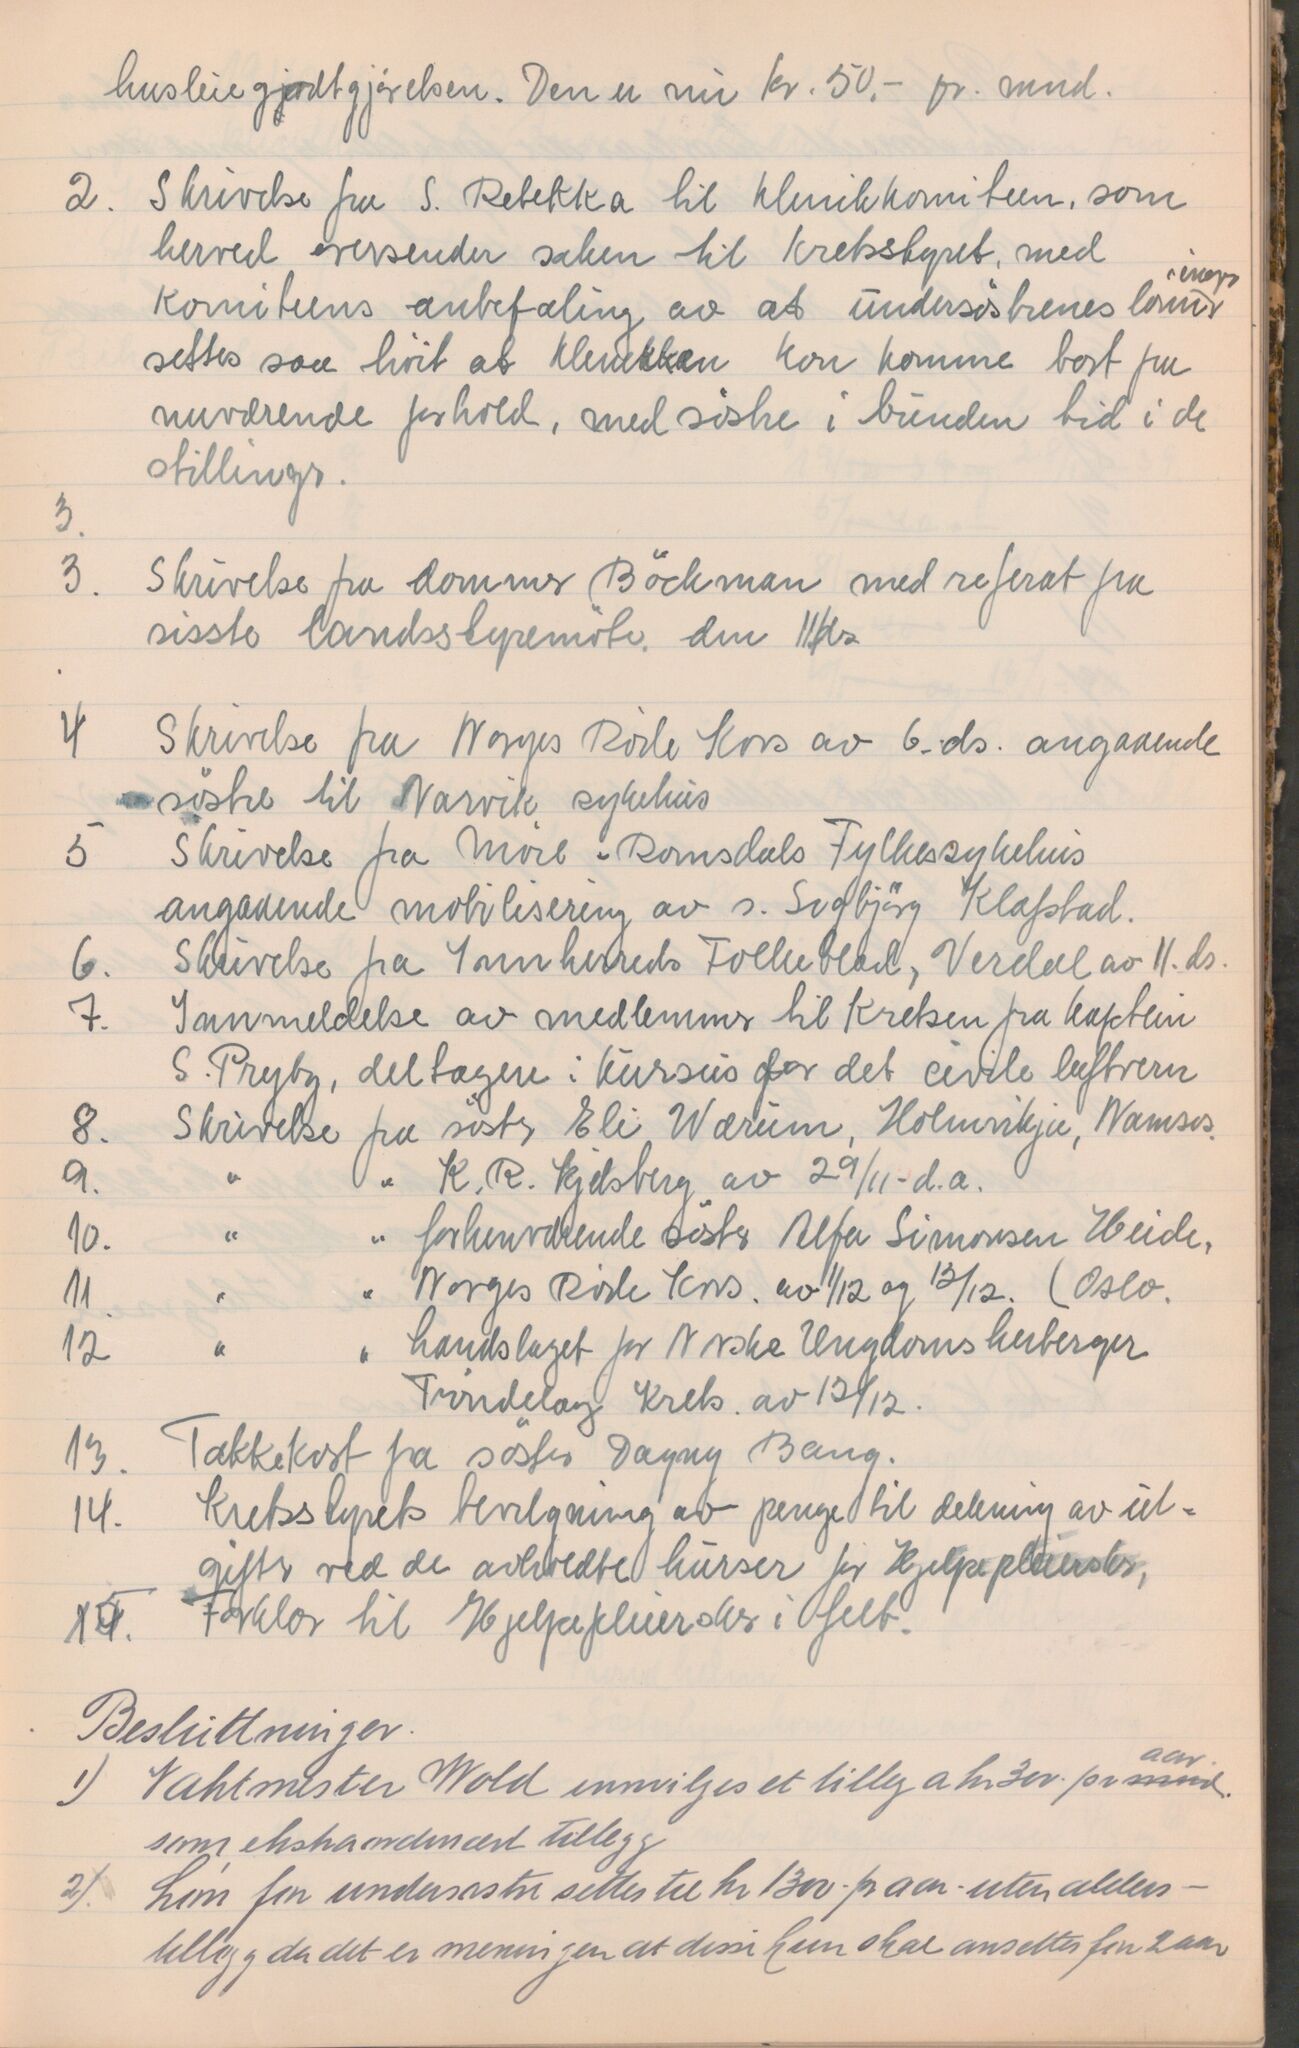 husleiegjodtgjörelsen. Den er nu kr. 50,- pr. mnd.
2. Skrivelse fra S. Rebekka til klinikkomiteen, som
herved oversender saken til Kretsstyret, med
Komiteens anbefaling av at undersöstrenes lönninger
settes saa höit at klinikken kan komme bort fra
nuværende forhold, med söstre i bunden tid i de
stillinger.
3.
3. Skrivelse fra dommer Böckman med referat fra
sisste Landsstyremöte. den 11/ds
4 Skrivelse fra Norges Röde Kors av 6. ds. angaaende
söstre til Narvik sykehus
5 Skrivelse fra Möre - Romsdals Fylkessykehus
angaaende mobilisering av s. Sigbjörg Klafstad.
6. Skrivelse fra Innherreds Folkeblad, Verdal av 11. ds.
7. Innmeldelse av medlemmer til Kretsen fra kaptein
S. Pryty, deltagere i kursus for det civile luftvern
8. Skrivelse fra söster Eli Wærum, Holmvikja, Namsos.
9. " " K. R. Kjelsberg av 29/11 - d.a.
10. " " forhenværende söster Alfa Simonsen Heide,
11. " " Norges Röde Kors. av 1/12 og 12/12. (Oslo.
12 " " Landslaget for Norske Ungdomsherberger
Tröndelag Krets. av 12/12.
13. Takkekort fra söster Dagny Bang.
14. Kretsstyrets bevilgning av penge til dekning av ut-
gifter ved de avholdte kurser for Hjelpepleiersker,
14. Forklær til Hjelpepleiersker i felt.
Beslutninger.
1) Vaktmester Wold innvilges et tillegg a kr 300.- pr mnd. aar.
som ekstraordinært tillegg
2). Lönn for undersöstre settes til kr 1300.- pr aar - uten alders-
tillegg da det er meningen at disse kun skal ansettes for 2 aar